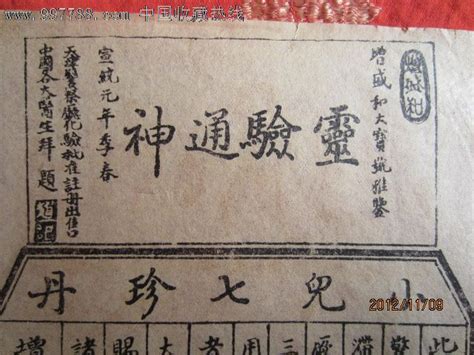 www.997788.com 中国收藏热线
增盛和
增盛和大寶號雅鑒
靈驗通神
宣統元年季春
天津警察廳化驗批准註冊出售
中國各大醫生拜題
小兒七珍丹
此
三
用
者
大
賜
諸
增
2012/11/09